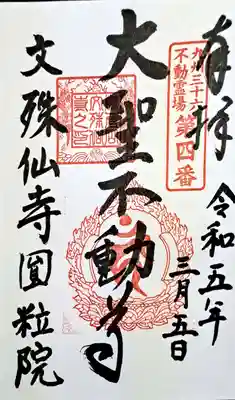 奉拝
九州三十六
不動霊場
第四番
令和五年
三月五日
大聖不動尊
文殊仙寺圓粒院